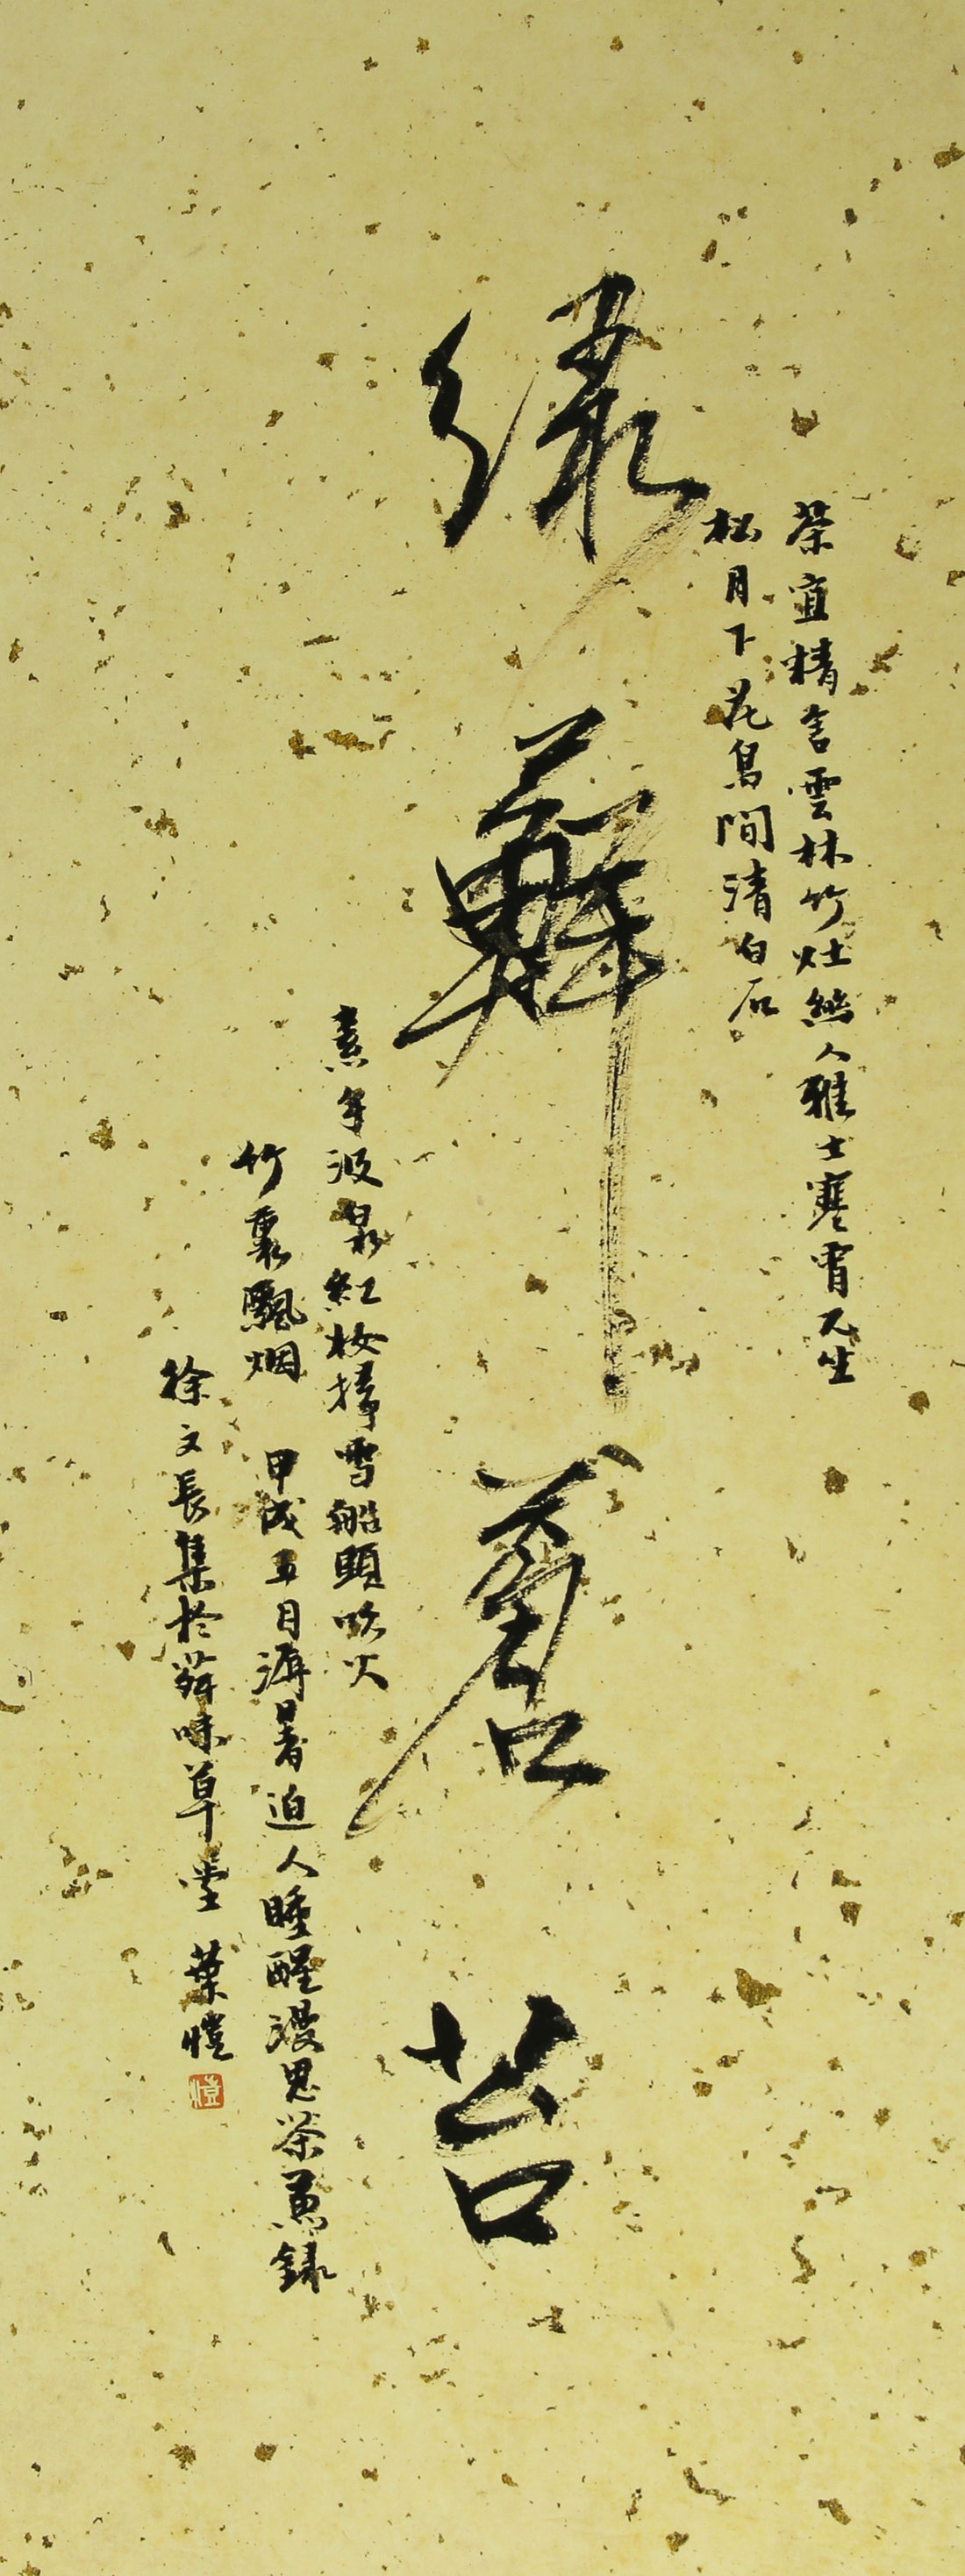 茶宜精舍雲林竹灶幽人雅士寒宵兀坐
松月下花鳥間清白石
綠蘚蒼苔
素手汲泉紅妝掃雪船頭吹火
竹裏飄烟 甲戌五月溽暑迫人睡醒漫思茶錄
徐文長集於味草堂 葉愷
愷